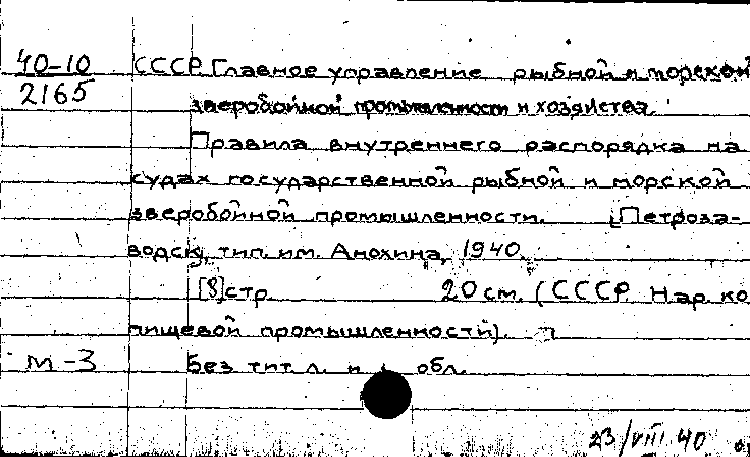 40-10 СССР. Главное управление рыбной и морской
2165 зверобойной промышленности и хозяйства.
Правила внутреннего распорядка на
судах государственной рыбной и морской
зверобойной промышленности. [Петроза-
водск, тип. им. Анохина, 1940.
[8] стр. 20 см. (СССР. Нар. ко
пищевой промышленности).
М-3 Без тит. л. и обл.
23/VIII 40